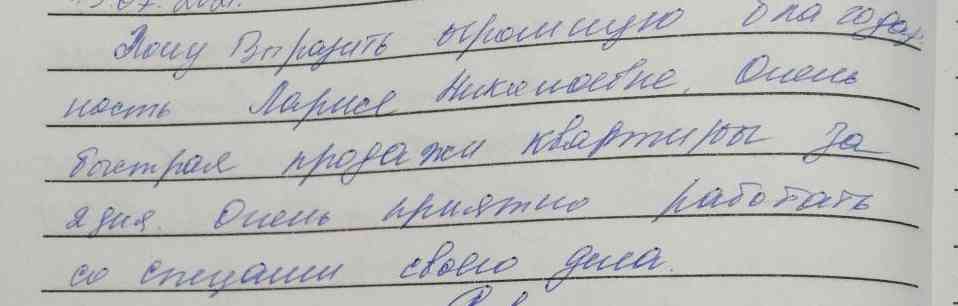 07.2021.
Хочу выразить огромную благодар
ность Ларисе Николаевне. Очень
быстрая продажи квартиры за
дня. Очень приятно работать
со спецами своего дела.